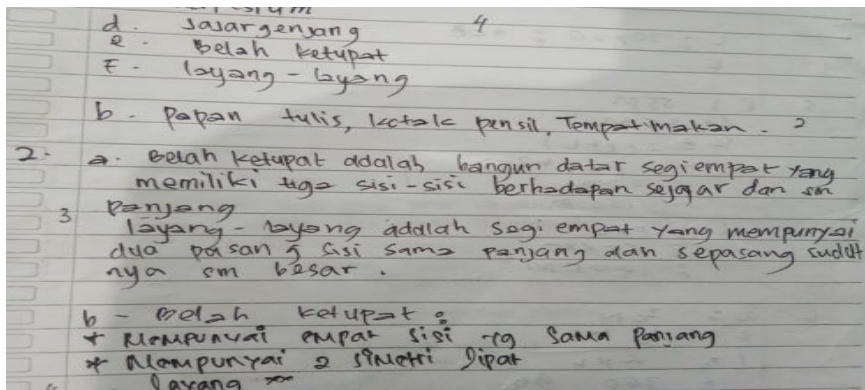 d. Jajargenjang 4
e. Belah ketupat
F. layang-layang
b. Papan tulis, kotak pensil, Tempat makan. 2
2. a. Belah ketupat adalah bangun datar segiempat yang
memiliki tiga sisi-sisi berhadapan sejajar dan sm
3 Panjang
layang-layang adalah segi empat yang mempunyai
dua pasang sisi sama panjang dan sepasang sudut
nya sm besar.
b - Belah ketupat :
* Mempunyai empat sisi yg sama panjang
* Mempunyai 2 simetri lipat
layang